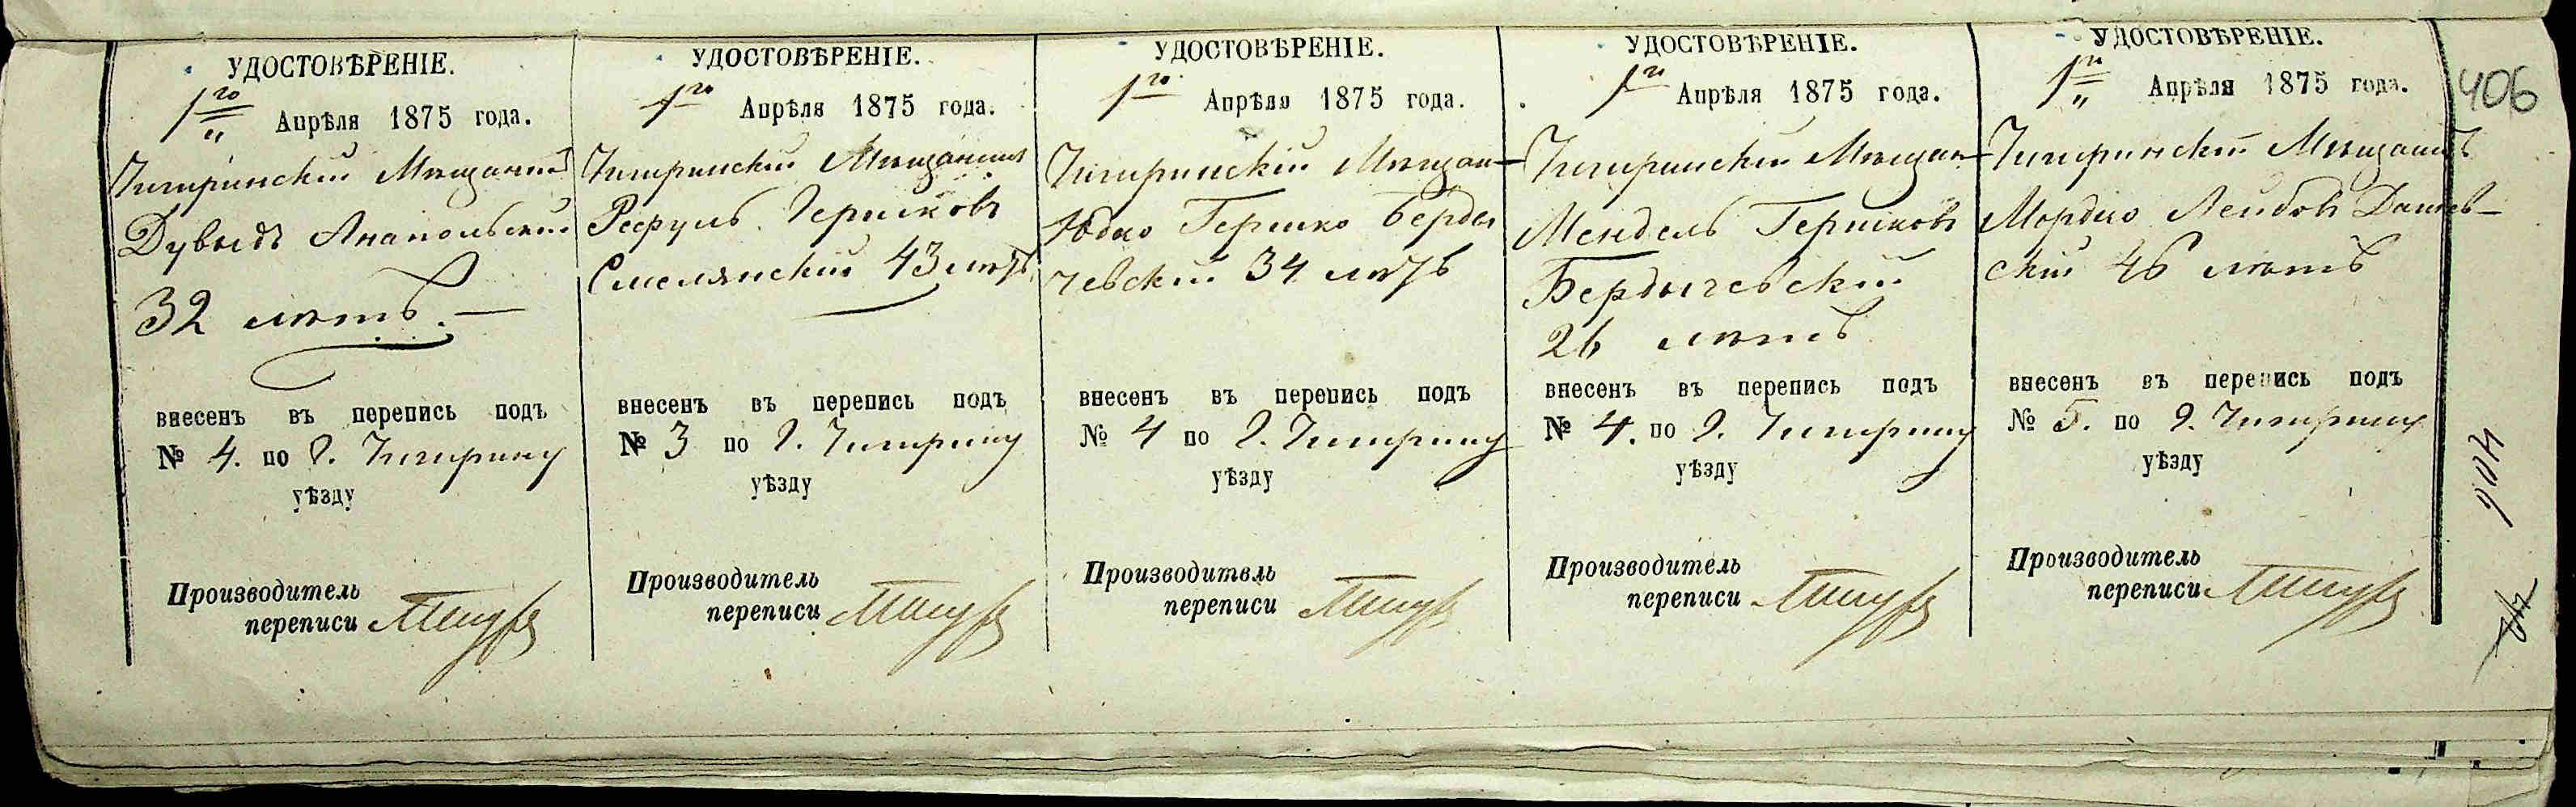 УДОСТОВѢРЕНІЕ.
1го Апрѣля 1875 года.
Чигиринскій Мѣщанинъ
Дувыдъ Анапольскій
32 лѣтъ. —
внесенъ въ перепись подъ
№ 4. по г. Чигирину
уѣзду
Производитель
переписи
УДОСТОВѢРЕНІЕ.
1го Апрѣля 1875 года.
Чигиринскій Мѣщанинъ
Гершковъ
Смелянскій 43 лѣтъ
внесенъ въ перепись подъ
№ 3 по г. Чигирину
уѣзду
Производитель
переписи
УДОСТОВѢРЕНІЕ.
1го Апрѣля 1875 года.
Чигиринскій Мѣщан—
Юдко Гершко Берды
чевскій 34 лѣтъ
внесенъ въ перепись подъ
№ 4 по г. Чигирину
уѣзду
Производитель
переписи
УДОСТОВѢРЕНІЕ.
1го Апрѣля 1875 года.
Чигиринскій Мѣщан—
Мендель Гершковъ
Бердычевскій
26 лѣтъ
внесенъ въ перепись подъ
№ 4. по г. Чигирину
уѣзду
Производитель
переписи
УДОСТОВѢРЕНІЕ.
1го Апрѣля 1875 года.
Чигиринскій Мѣщанинъ
Мордко Лейбовъ
скій 46 лѣтъ
внесенъ въ перепись подъ
№ 5. по г. Чигирину
уѣзду
Производитель
переписи
406